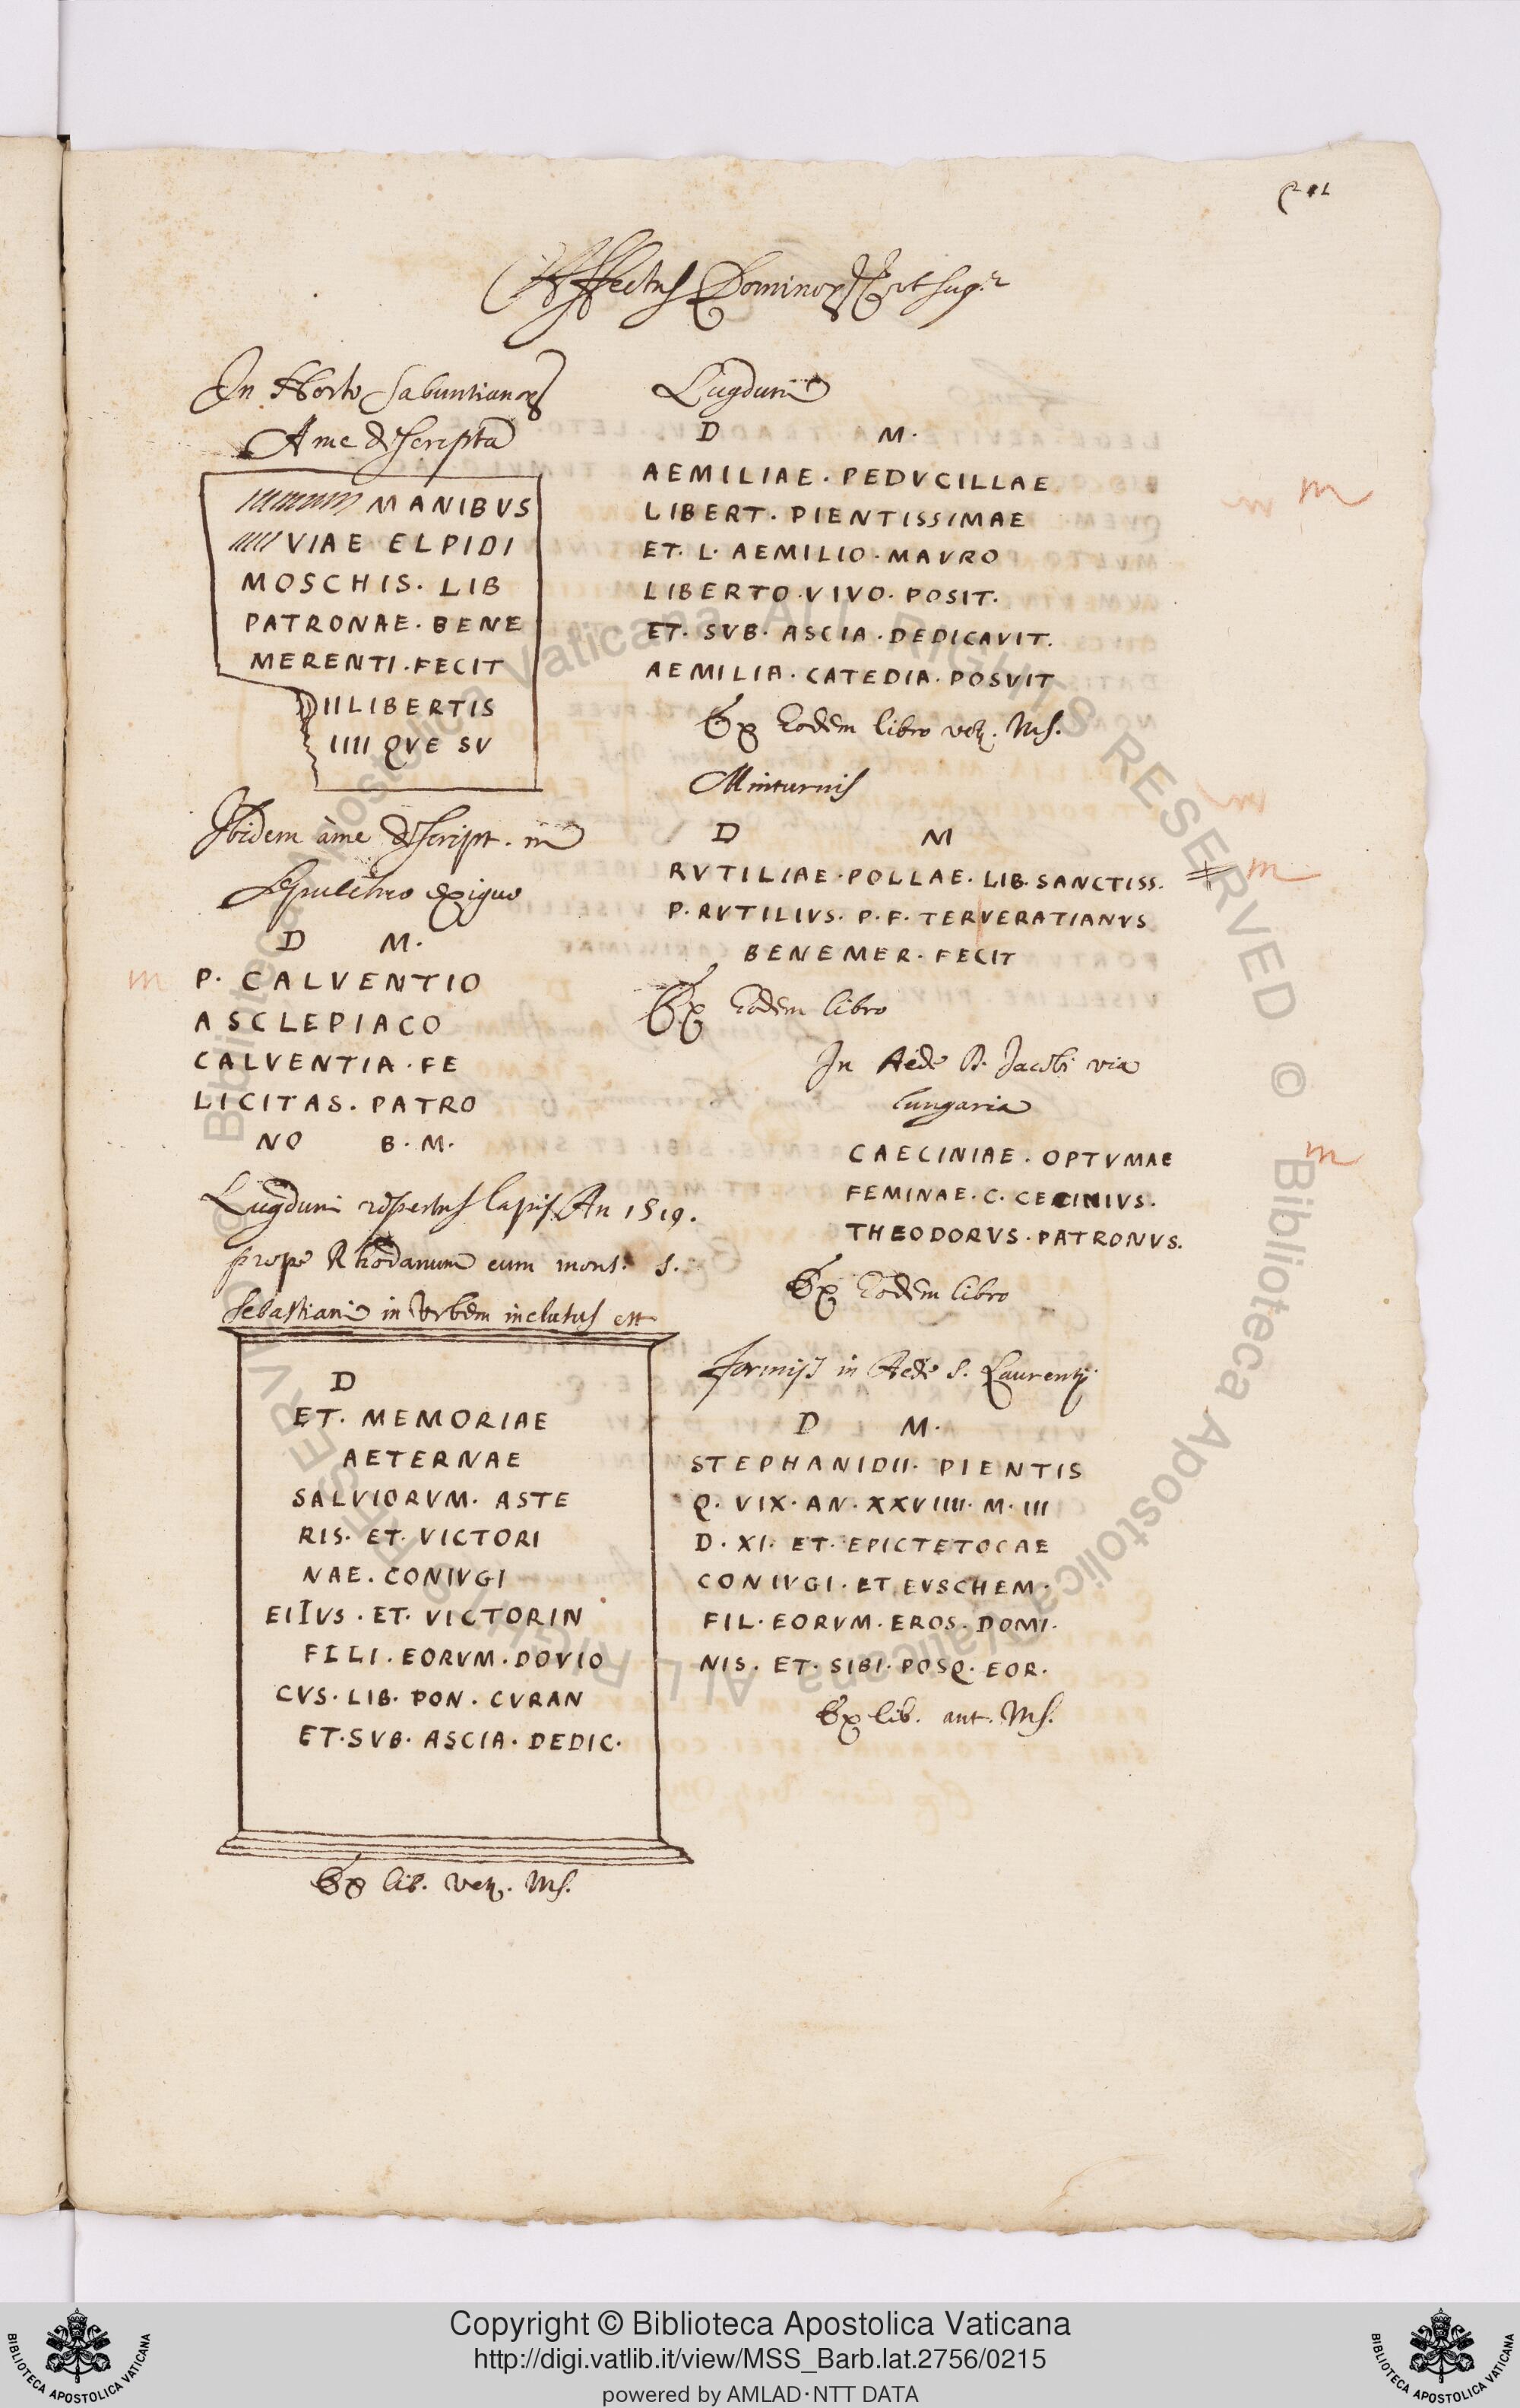 Affectus Dominor. Erl sug.r
In Horto Sabuntianor
A me descripta
MANIBVS
VIAE ELPIDI
MOSCHIS. LIB
PATRONAE. BENE
MERENTI. FECIT
IILIBERTIS
IIII QVE SV
Ibidem à me descript. in
sepulchro exiguo
D M.
P. CALVENTIO
ASCLEPIACO
CALVENTIA. FE
LICITAS. PATRO
NO B. M.
Lugduni repertus lapis An 1519.
prope Rhodanum cum mons. S.
Sebastiani in Urbem inclutus est
D
ET. MEMORIAE
AETERNAE
SALVIORVM. ASTE
RIS. ET. VICTORI
NAE. CONIVGI
EIIVS. ET. VICTORIN
FILI. EORVM. DOVIO
CVS. LIB. PON. CVRAN
ET. SVB. ASCIA. DEDIC.
Ex lib. vet. Ms.
Lugduni
D M.
AEMILIAE. PEDVCILLAE
LIBERT. PIENTISSIMAE
ET. L. AEMILIO. MAVRO
LIBERTO. VIVO. POSIT.
ET. SVB. ASCIA. DEDICAVIT.
AEMILIA. CATEDIA. POSVIT
Ex Eodem libro vet. Ms.
Minturnis
D M
RVTILIAE. POLLAE. LIB. SANCTISS.
P. RVTILIVS. P. F. TERVERATIANVS
BENEMER. FECIT
Ex Eodem libro
In Aede D. Jacobi via
Lungaria
CAECINIAE. OPTVMAE
FEMINAE. C. CECINIVS.
THEODORVS. PATRONVS.
Ex Eodem libro
Formijs in Aede S. Laurentij
D M.
STEPHANIDII. PIENTIS
Q. VIX. AN. XXVIIII. M. III
D. XI. ET. EPICTETOCAE
CONIVGI. ET EVSCHEM.
FIL. EORVM. EROS. DOMI.
NIS. ET. SIBI. POSQ. EOR.
Ex lib. ant. Ms.
m
m
m
m
Biblioteca Apostolica Vaticana ALL RIGHTS RESERVED ©
Copyright © Biblioteca Apostolica Vaticana
http://digi.vatlib.it/view/MSS_Barb.lat.2756/0215
powered by AMLAD·NTT DATA
BIBLIOTECA APOSTOLICA VATICANA
BIBLIOTECA APOSTOLICA VATICANA